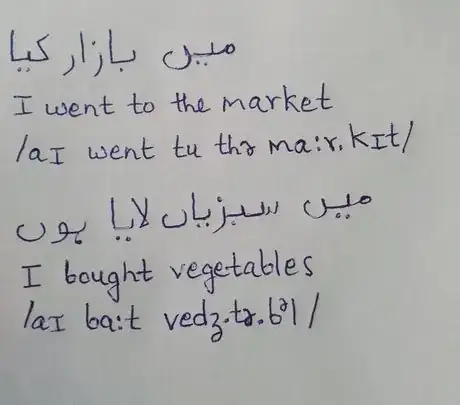 میں بازار کیا
I went to the market
/aɪ went tu thə ma:r.kɪt/
میں سبزیاں لایا ہوں
I bought vegetables
/aɪ ba:t vedʒ.tə.bəl/